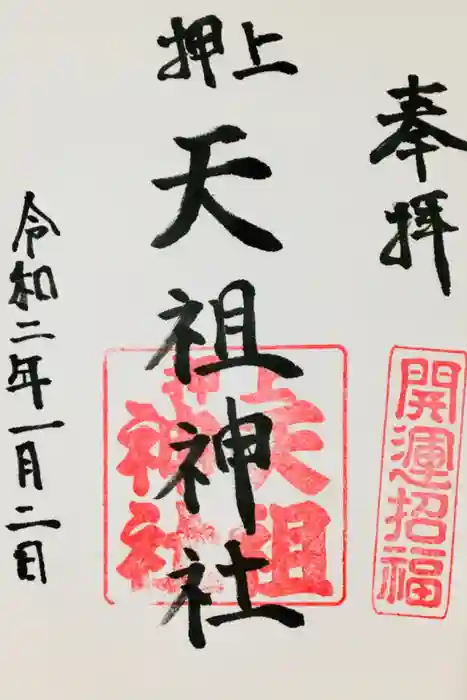 奉拝
開運招福
押上
天祖神社
押上
天祖
神社
令和二年一月二日